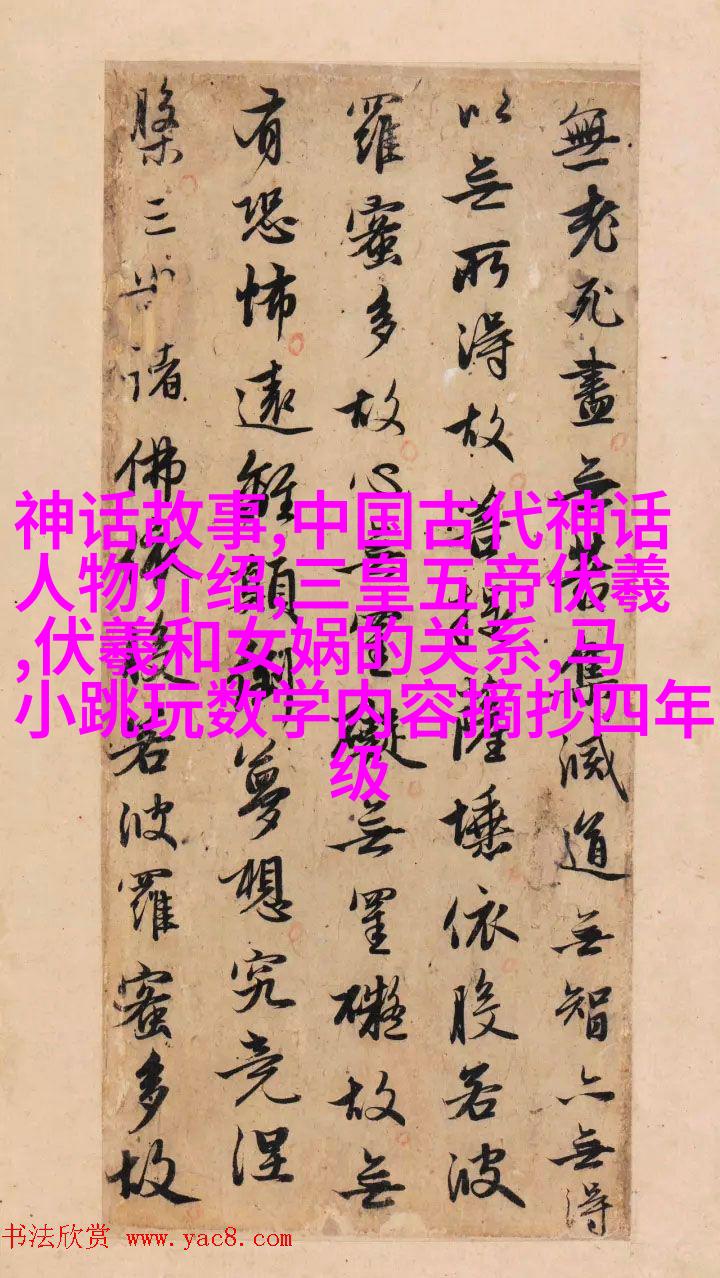 無老死盡无苦集滅道无智亦无得
以无所得故菩提薩埵依般若波
羅蜜多故心无罣礙无罣礙故无
有恐怖遠離顛倒夢想究竟涅
槃三世諸佛依般若波羅蜜多故
神话故事,中国古代神话
人物介绍,三皇五帝伏羲
,伏羲和女娲的关系,马
小跳玩数学内容摘抄四年
级
书法欣赏 www.yac8.com